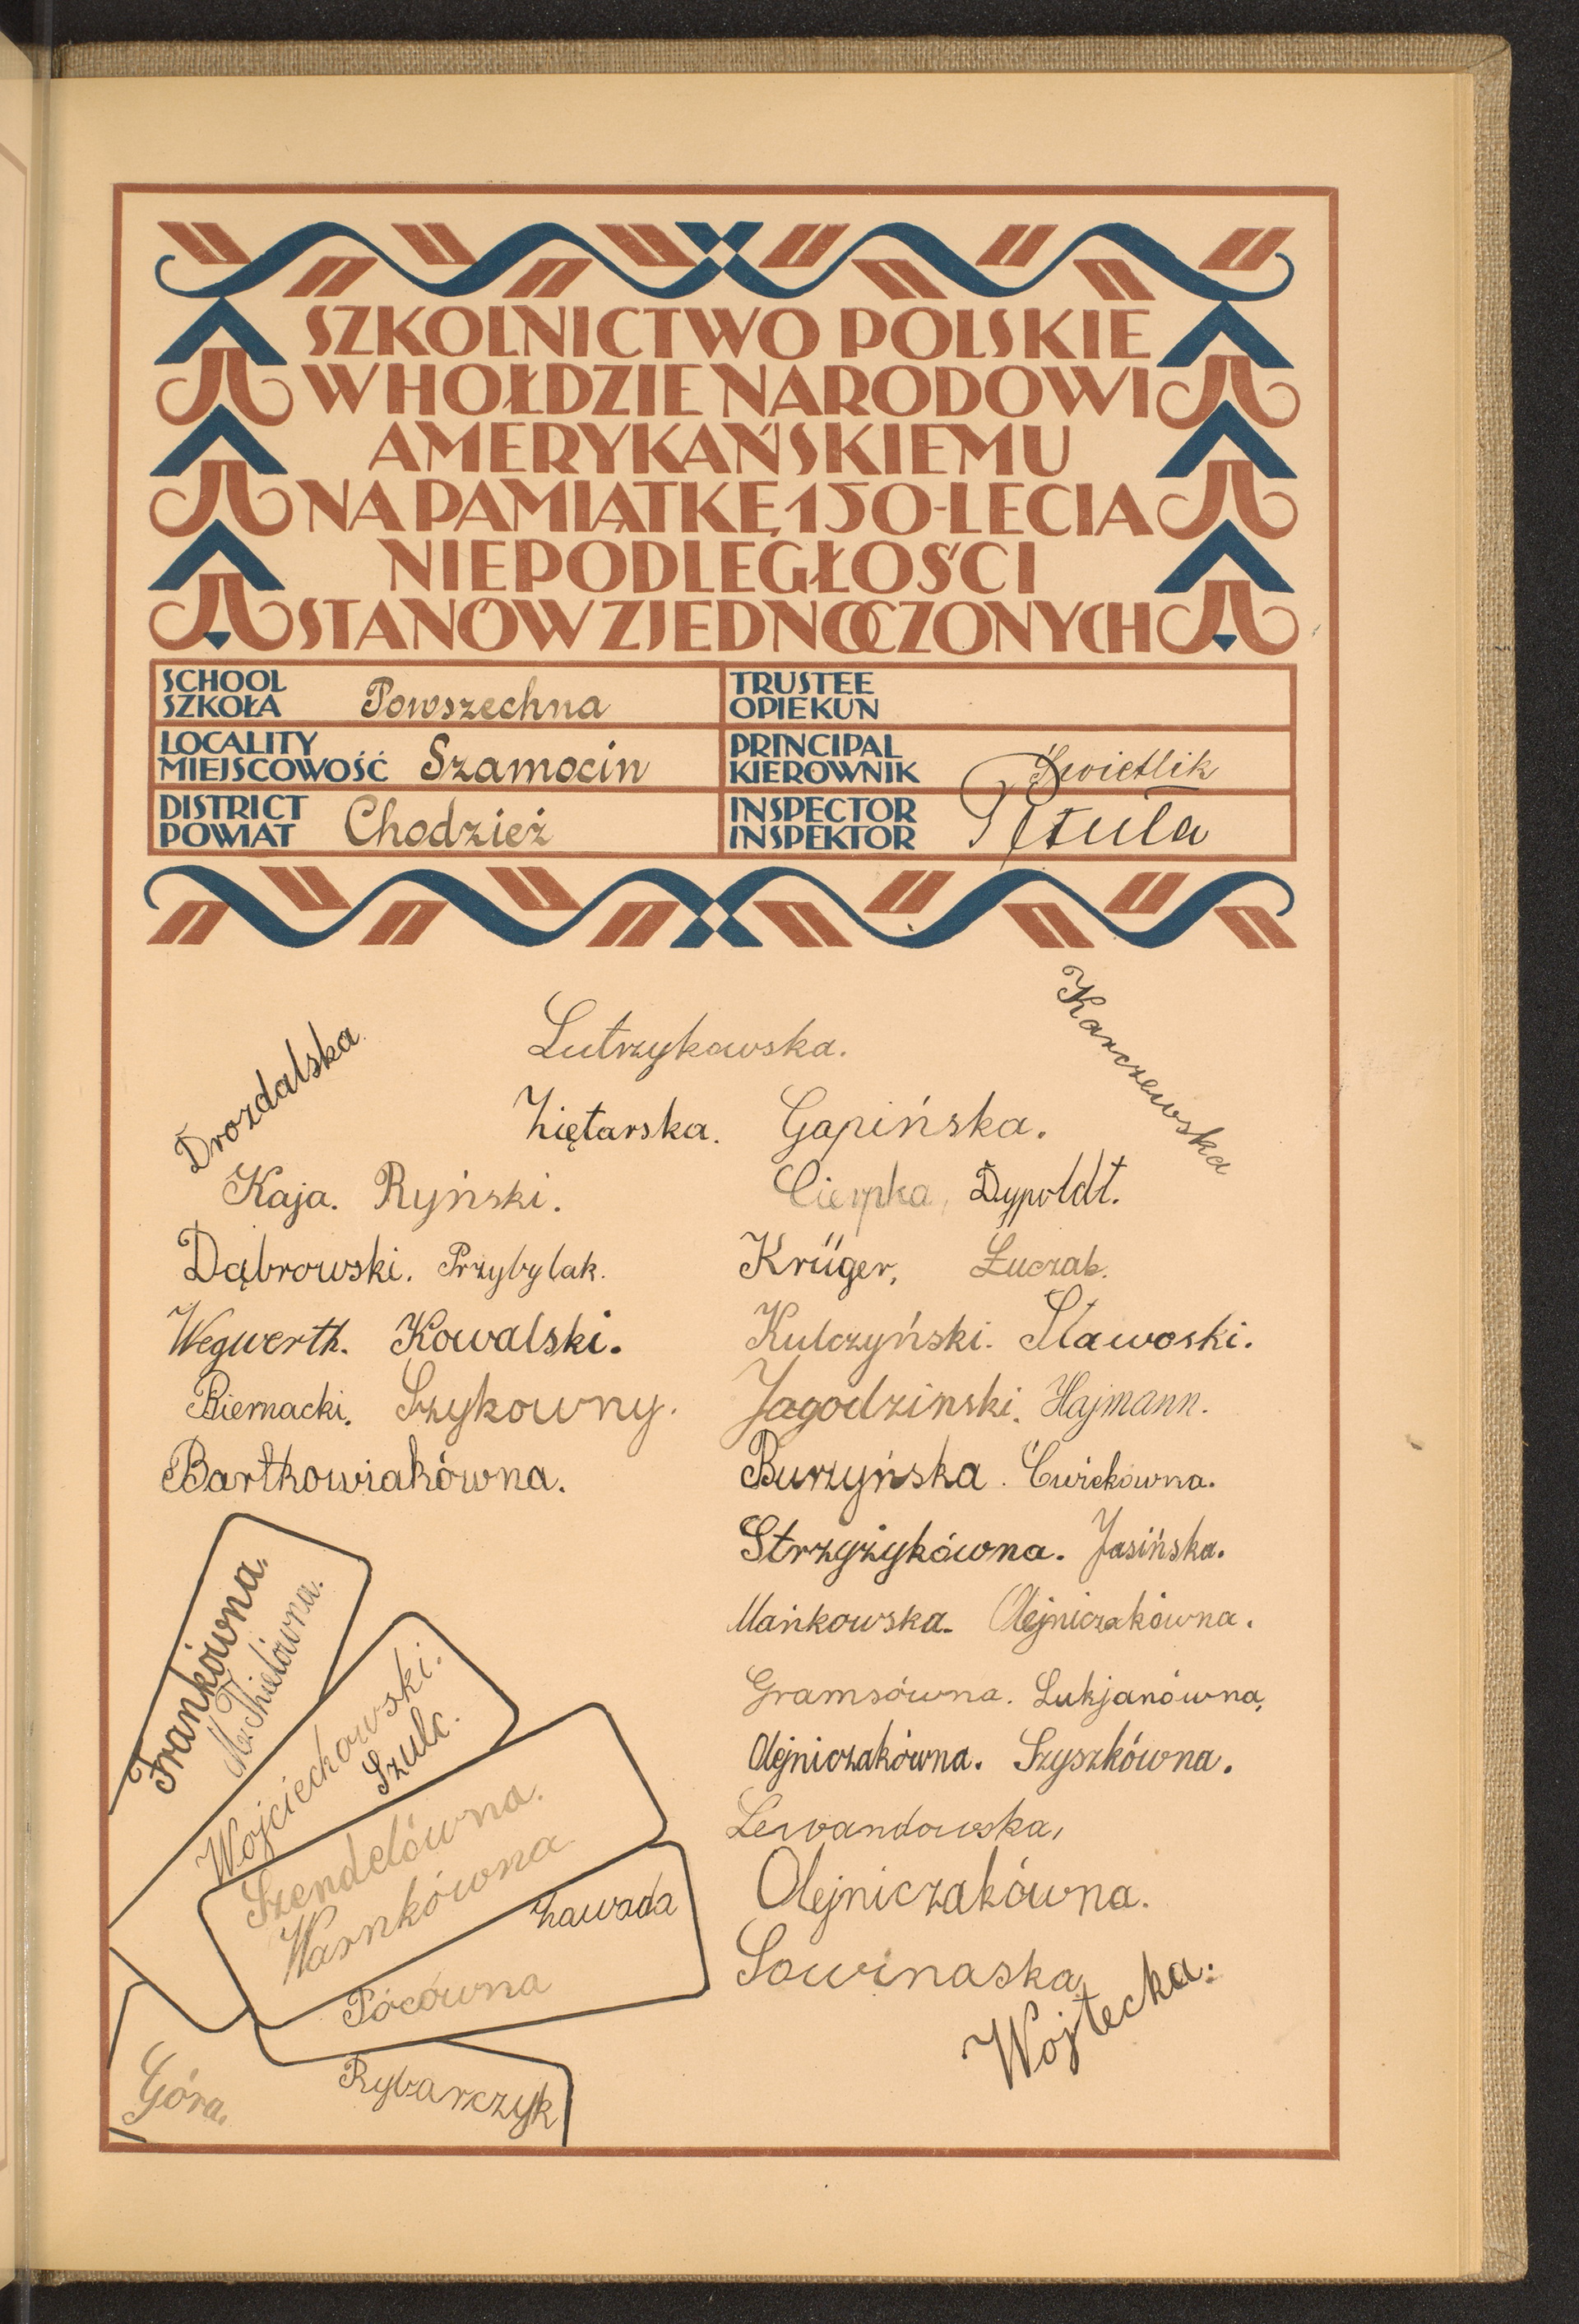 SZKOLNICTWO POLSKIE
W HOŁDZIE NARODOWI
AMERYKAŃSKIEMU
NA PAMIĄTKĘ 150-LECIA
NIEPODLEGŁOŚCI
STANÓW ZJEDNOCZONYCH
SCHOOL
SZKOŁA Powszechna
TRUSTEE
OPIEKUN
LOCALITY
MIEJSCOWOŚĆ Szamocin
PRINCIPAL
KIEROWNIK Kwietlik
DISTRICT
POWIAT Chodzież
INSPECTOR
INSPEKTOR Petula
Drozdalska
Lutrzykowska.
Karczewska
Ziętarska. Gapińska.
Kaja. Ryński.
Cierpka, Dypoldt.
Dąbrowski. Przybylak.
Krüger, Łuczak.
Wegwerth. Kowalski.
Kulczyński. Sławoski.
Biernacki. Szykowny.
Jagodzinski. Hajmann.
Bartkowiakówna.
Burzyńska. Ćwiekówna.
Strzyżykówna. Jasińska.
Mańkowska. Olejniczakówna.
Gramsówna. Lukjanówna,
Olejniczakówna. Szyszkówna.
Lewandowska,
Olejniczakówna.
Sowinaska,
Wojtecka.
Frankówna.
M. Thielówna.
Wojciechowski.
Szulc.
Szendelówna.
Warnkówna
Zawada
Pócówna
Góra.
Rybarczyk